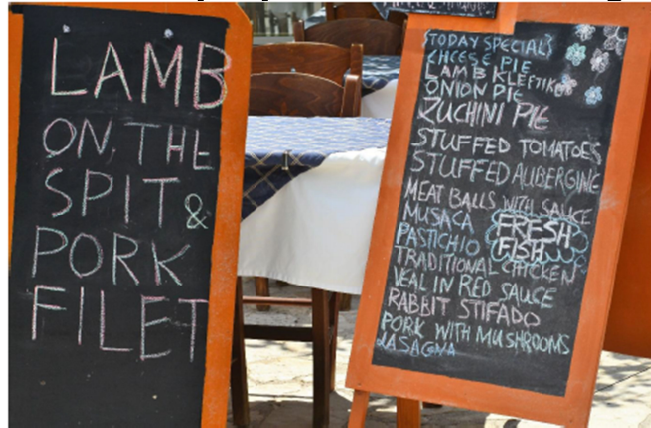 LAMB
ON THE
SPIT &
PORK
FILET
{TODAY SPECIALS}
CHEESE PIE
LAMB KLEFTIKO
ONION PIE
ZUCHINI PIE
STUFFED TOMATOES
STUFFED AUBERGINE
MEAT BALLS WITH SAUCE
MUSACA
PASTICHIO
FRESH
FISH
TRADITIONAL CHICKEN
VEAL IN RED SAUCE
RABBIT STIFADO
PORK WITH MUSHROOMS
LASAGNA